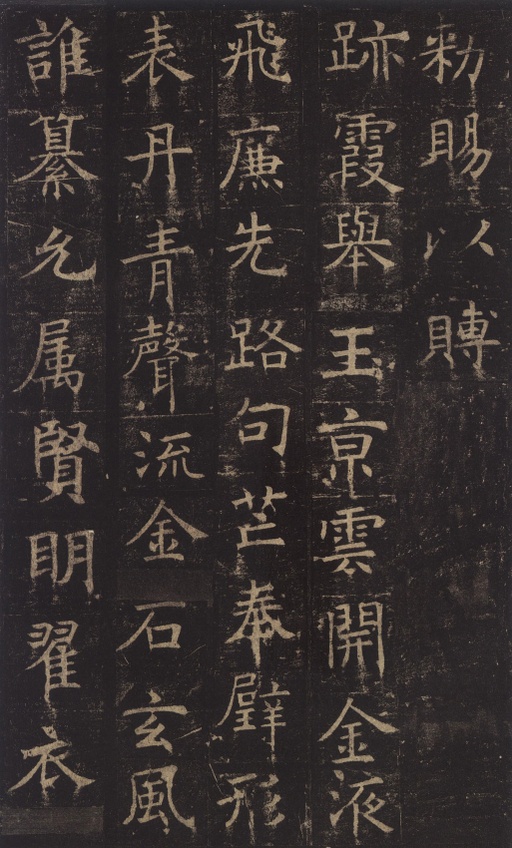 勑賜以賻
跡霞舉玉京雲開金液
飛廉先路句芒奉辟形
表丹青聲流金石玄風
誰纂允属賢明翟衣